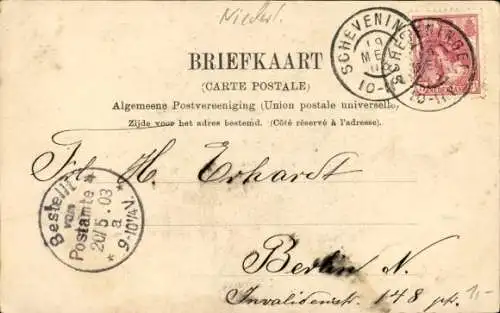 Niederl.
BRIEFKAART
(CARTE POSTALE)
Algemeene Postvereeniging (Union postale universelle)
Zijde voor het adres bestemd. (Côté réservé à l'adresse).
SCHEVENINGEN
19
ME
10-11
SCHEVENINGEN
10-11
Frl. H. Erhardt
Bestellt
vom
Postamte
20/5.03
a
9-10¼V.
Berlin N.
Invalidenstr. 148 pt.
1,-